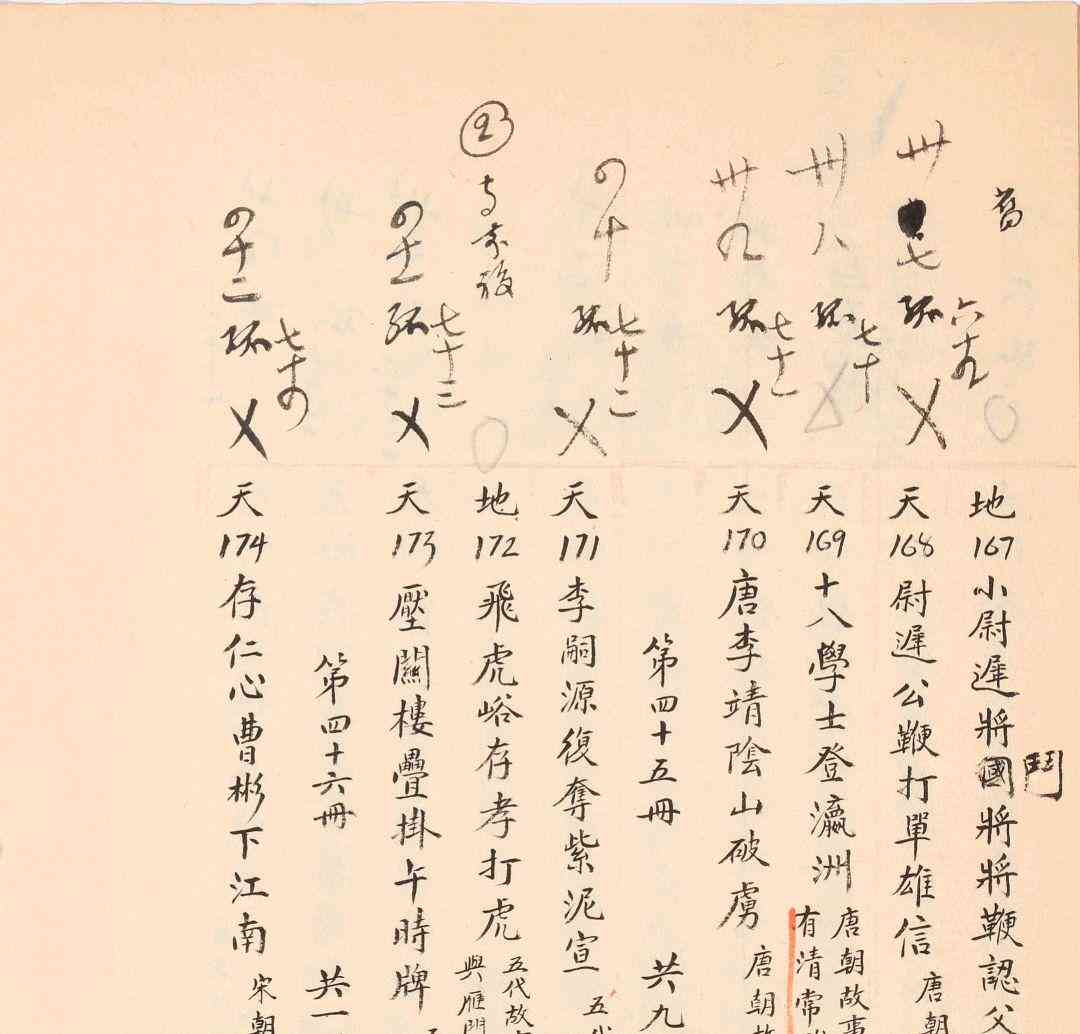 舊
地167小尉遲將國將將鞭認父
鬥
六十九
卅七 孤
天168尉遲公鞭打單雄信 唐朝
卅八 孤
七十
天169十八學士登瀛洲 唐朝故事
有清常
卅九 孤
七十一
天170唐李靖陰山破虜 唐朝故
第四十五冊 共九
四十 孤
七十二
天171李嗣源復奪紫泥宣 五代
2
地172飛虎峪存孝打虎 五代故
與雁門
四十一 孤
七十三
天173壓關樓疊掛午時牌
第四十六冊 共一
四十二 孤
七十四
天174存仁心曹彬下江南 宋朝